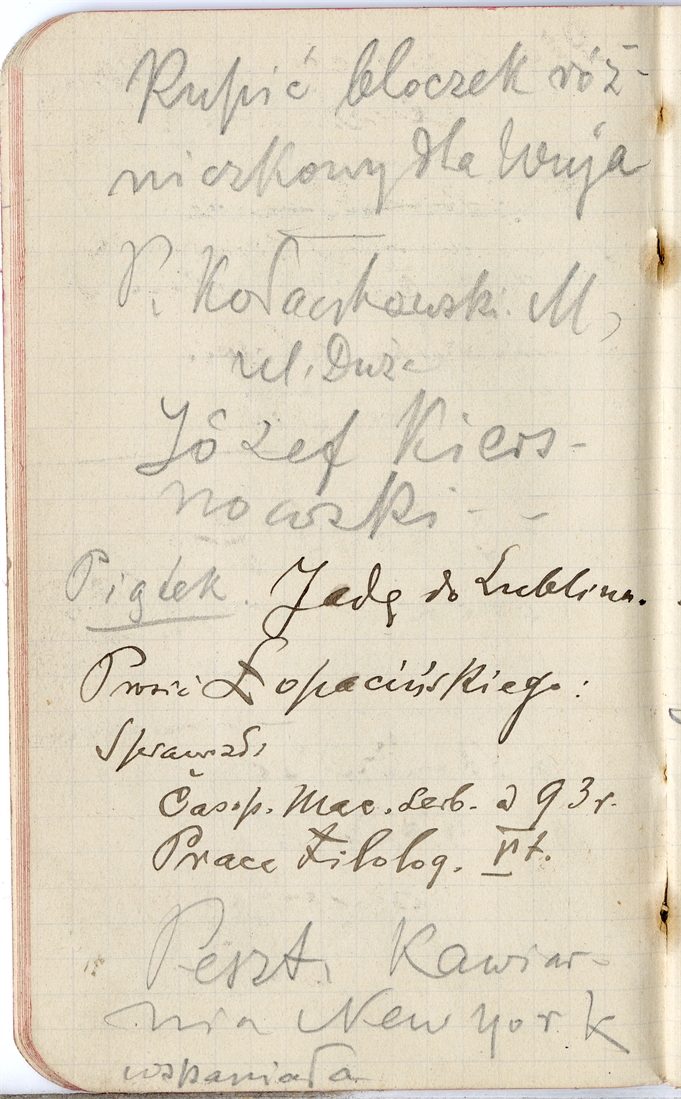 Kupić bloczek róż-
niczkowy dla Wuja
P. Kołaczkowski. M,
ul. Duża
Józef Kiers-
nowski - -
Piątek. Jadę do Lublina.
Prosić Łopacińskiego:
Sprawdź
Časop. Mac. Serb. 93 r.
Prace Filolog. V t.
Peszt. Kawiar-
nia New York
wspaniała